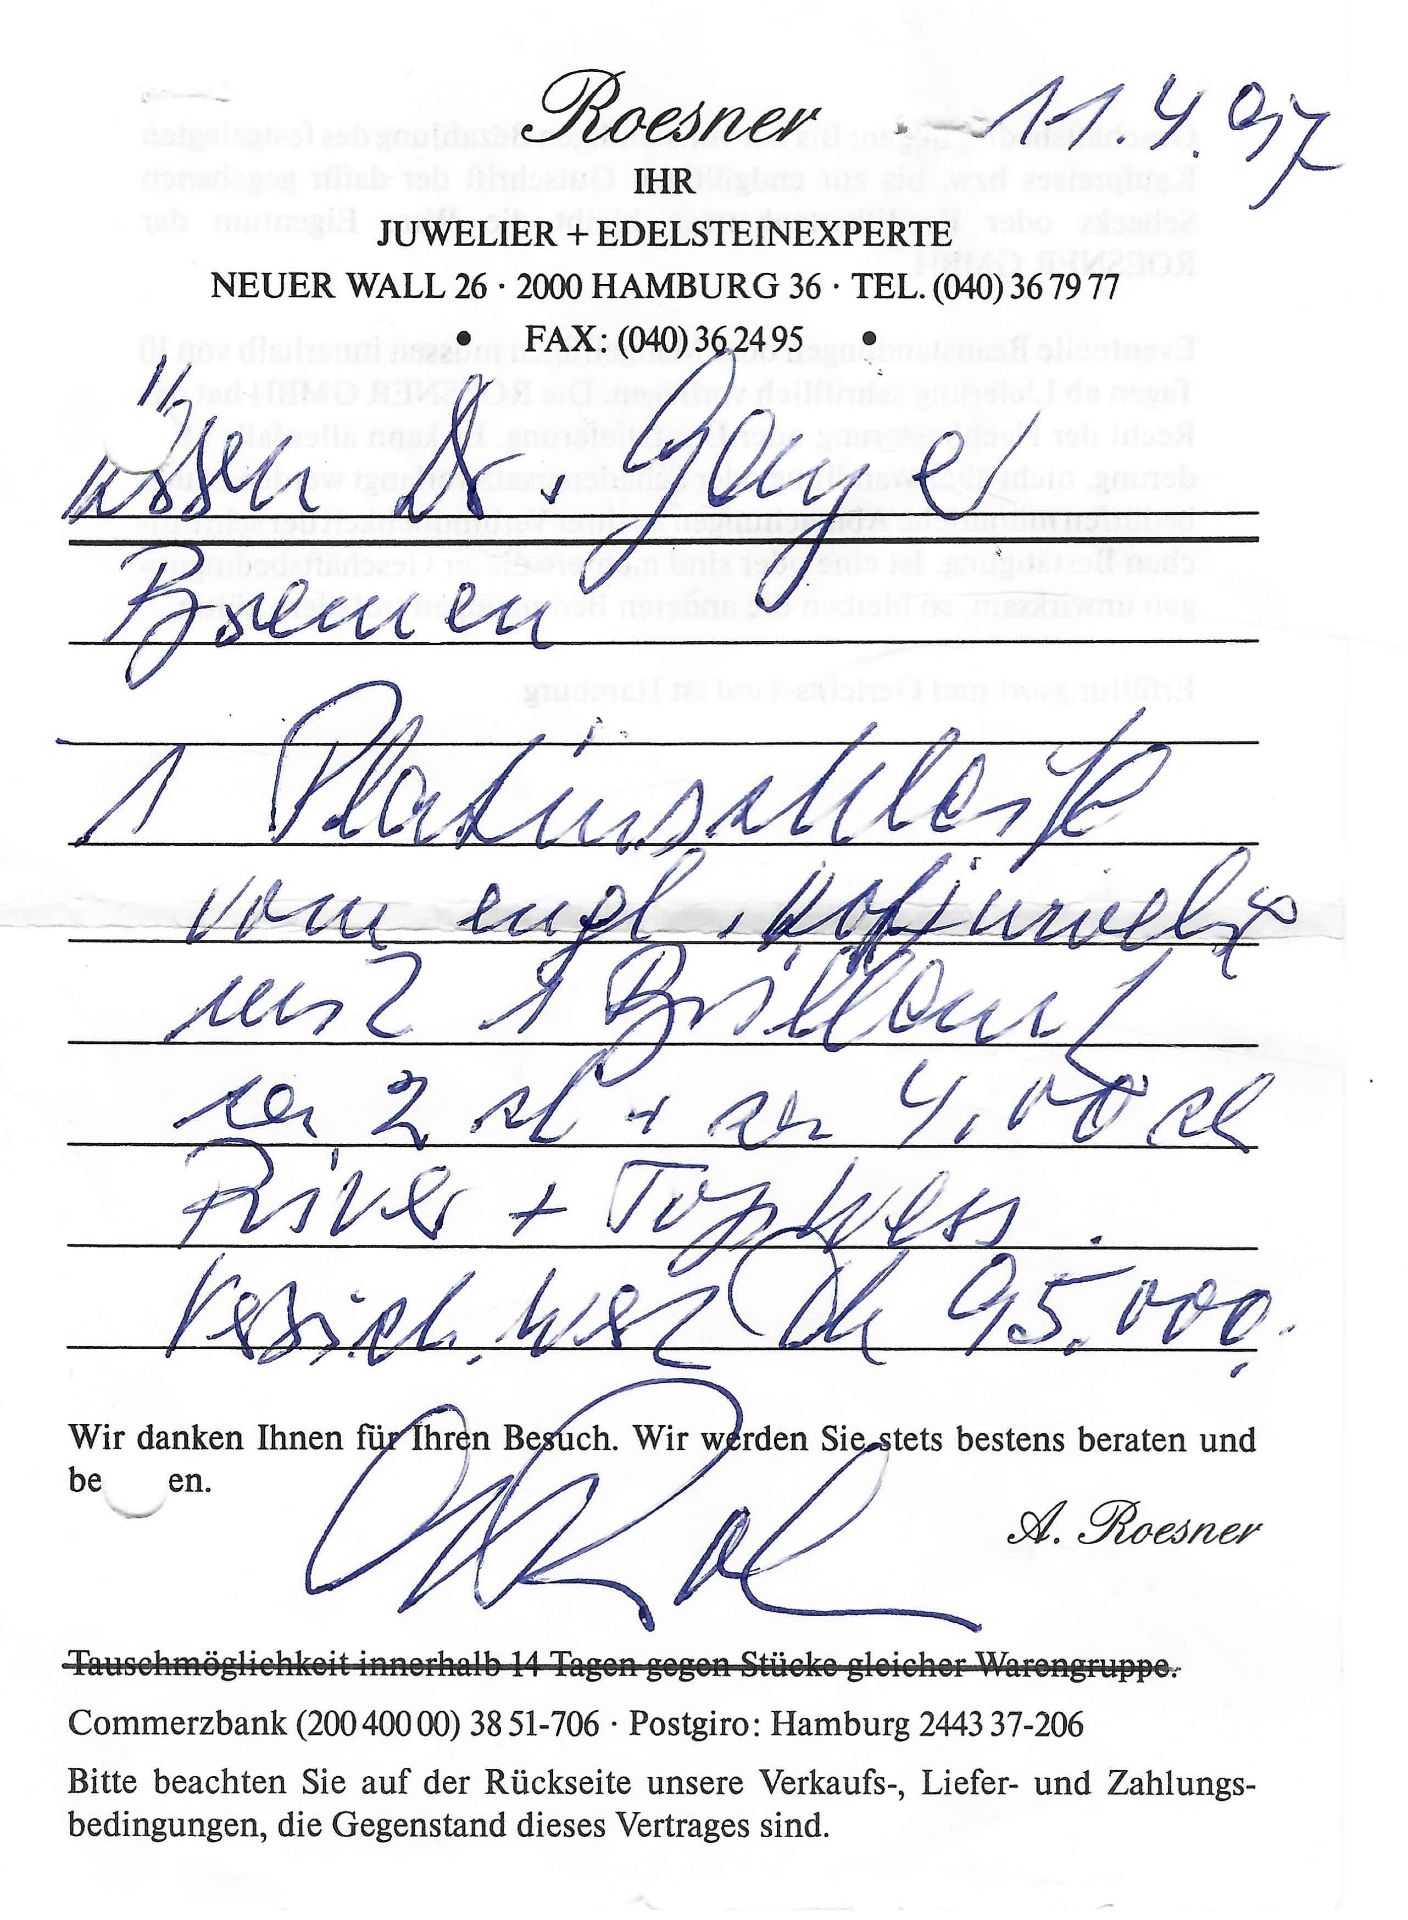 Roesner
11.4.97
IHR
JUWELIER + EDELSTEINEXPERTE
NEUER WALL 26 · 2000 HAMBURG 36 · TEL. (040) 36 79 77
• FAX: (040) 36 24 95 •
Dr.
Bremen
1 Platinschleife
vom engl. Hofjuwelier
mit 1 Brillant
ca 2 ct + ca 4,00 ct
River + Topwess.
Versich. wert DM 95.000,-
Wir danken Ihnen für Ihren Besuch. Wir werden Sie stets bestens beraten und
be en.
A. Roesner
Tauschmöglichkeit innerhalb 14 Tagen gegen Stücke gleicher Warengruppe.
Commerzbank (200 400 00) 38 51-706 · Postgiro: Hamburg 2443 37-206
Bitte beachten Sie auf der Rückseite unsere Verkaufs-, Liefer- und Zahlungs-
bedingungen, die Gegenstand dieses Vertrages sind.